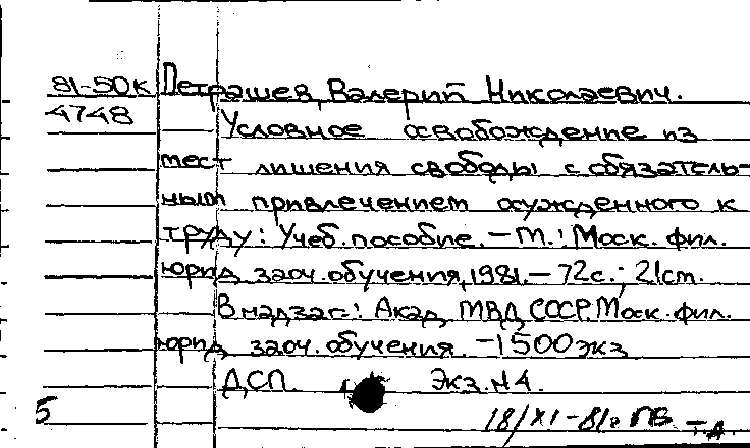 81-50к Петрашев, Валерий Николаевич.
4748 Условное освобождение из
мест лишения свободы с обязатель-
ным привлечением осужденного к
труду: Учеб. пособие. - М.: Моск. фил.
юрид. заоч. обучения, 1981. - 72с.; 21см.
В надзаг.: Акад. МВД СССР. Моск. фил.
юрид. заоч. обучения. - 1500экз
ДСП. Экз. N4.
5 18/XI-81г ПВ Т.А